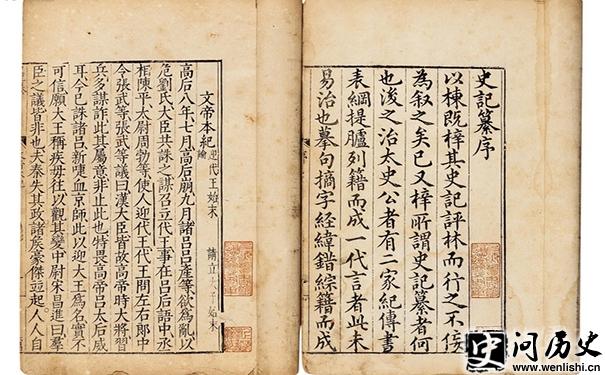 史記纂序
以棟既梓其史記評林而行之不佞
為叙之矣已又梓所謂史記纂者何
也後之治太史公者有二家紀傳書
表綱提臚列籍而成一代言者此未
易治也摹句摘字經緯錯綜籍而成
文帝本紀 論 迎代王始末 請立太子始末
高后八年七月高后崩九月諸呂呂產等欲為亂以
危劉氏大臣共誅之謀召立代王事在呂后語中丞
相陳平太尉周勃等使人迎代王代王問左右郎中
令張武等張武等議曰漢大臣皆故高帝時大將習
兵多謀詐此其屬意非止此也特畏高帝呂太后威
耳今已誅諸呂新喋血京師此以迎大王為名實不
可信願大王稱疾毋往以觀其變中尉宋昌進曰羣
臣之議皆非也夫秦失其政諸侯豪傑並起人人自
史问历史
www.wenlishi.cn